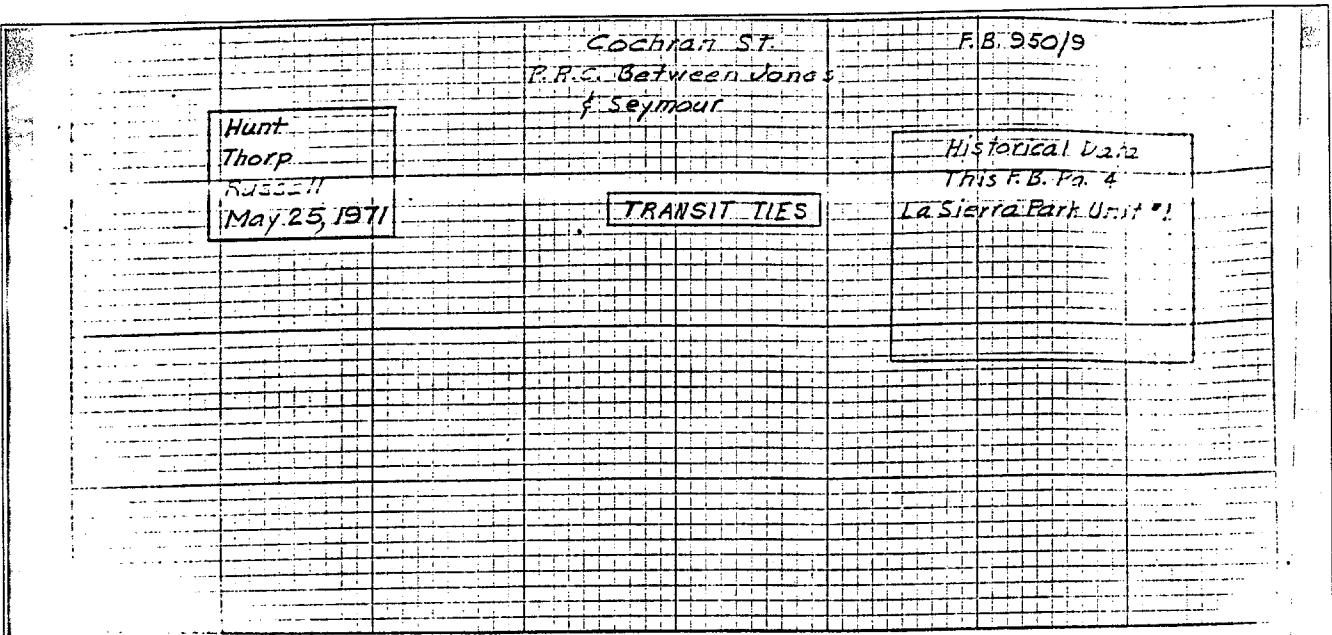 Cochran St.
P.R.C. Between Jonas
& Seymour
F.B. 950/9
Hunt
Thorp
Russell
May 25, 1971
TRANSIT TIES
Historical Data
This F.B. Pg. 4
La Sierra Park Unit #1